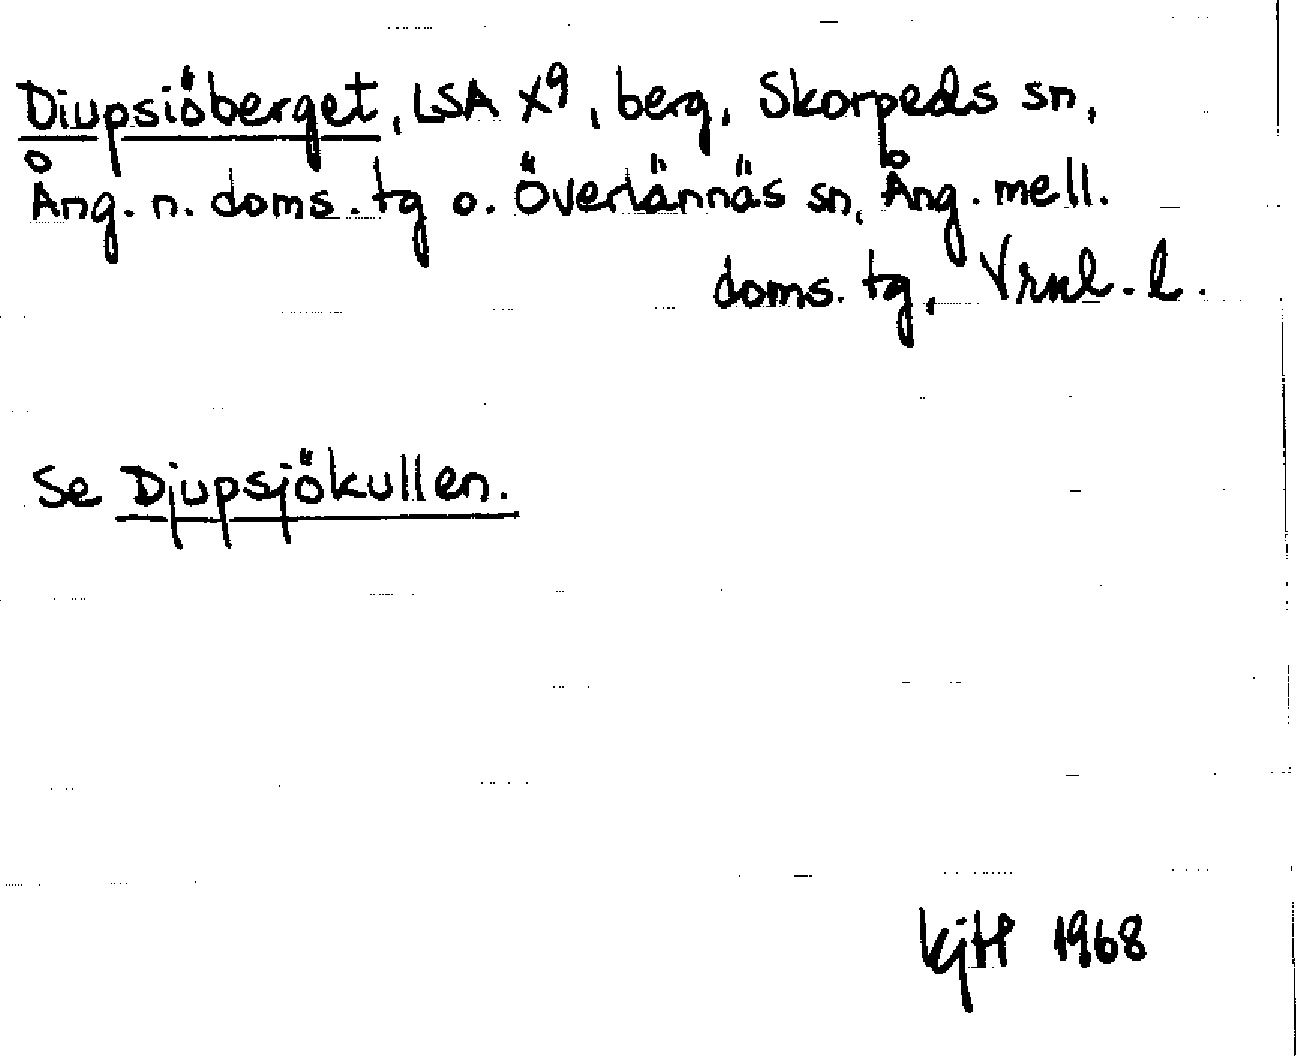 Diupsiöberget, LSA X9, berg, Skorpeds sn,
Ång. n. doms. tg o. Överlännäs sn, Ång. mell.
doms. tg, Vrnl. l.
Se Djupsjökullen.
KjtH 1968